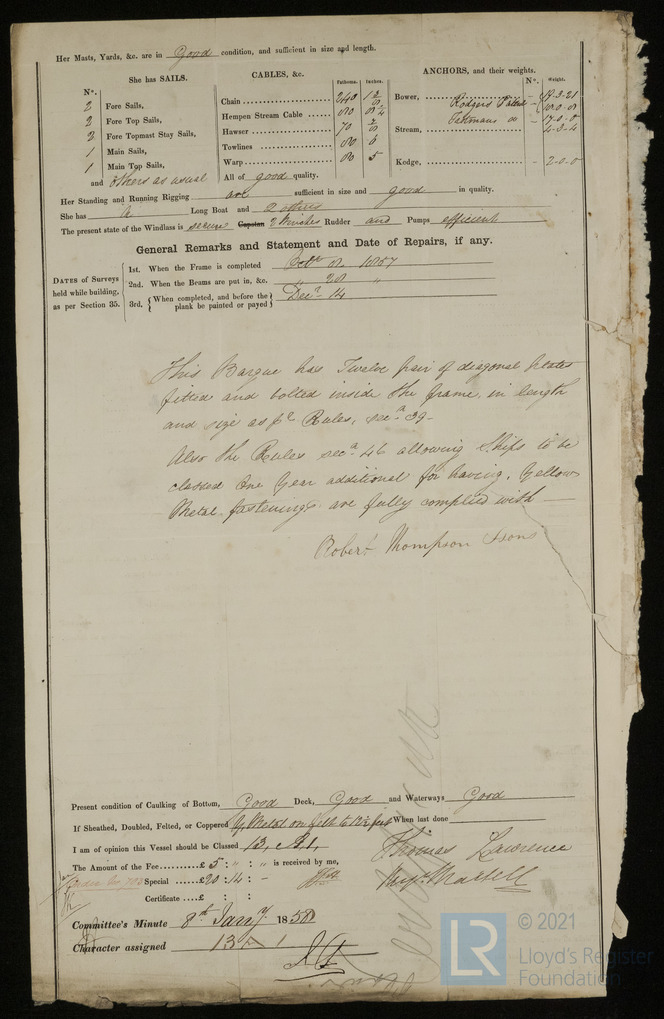 Her Masts, Yards, &c. are in Good condition, and sufficient in size and length.
She has SAILS.
N°.
2 Fore Sails,
2 Fore Top Sails,
2 Fore Topmast Stay Sails,
1 Main Sails,
1 Main Top Sails,
and others as usual
CABLES, &c. Fathoms. Inches.
Chain 240
Hempen Stream Cable 80
Hawser 70
Towlines 80 6
Warp 80 5
All of good quality.
ANCHORS, and their weights. N°. Weight.
Bower, Rodgers Patent
Trotmans do 17-0-0
Stream, 4-3-4
Kedge, 2-0-0
Her Standing and Running Rigging are sufficient in size and good in quality.
She has a Long Boat and 2 others
The present state of the Windlass is secure Capstan 2 Winches Rudder and Pumps efficient
General Remarks and Statement and Date of Repairs, if any.
DATES of Surveys held while building, as per Section 35.
1st. When the Frame is completed Octr 8 1857
2nd. When the Beams are put in, &c. " 28 "
3rd. When completed, and before the plank be painted or payed Decr 14
This Barque has Twelve pair of diagonal plates
fitted and bolted inside the frame, in length
and size as pr Rules, secn 39-
Also the Rules secn 46 allowing Ships to be
classed One Year additional for having Yellow
Metal fastenings are fully complied with —
Robert Thompson & Sons
Present condition of Caulking of Bottom, Good Deck, Good and Waterways Good
If Sheathed, Doubled, Felted, or Coppered Y Metal on felt to 13½ feet When last done
I am of opinion this Vessel should be Classed 13, A1,
Thomas Lawrence
The Amount of the Fee......£ 5 : " : " is received by me,
Special ......£20 : 14 : -
Martell
Certificate ....£ : :
Committee's Minute 8th Jany 1858
Character assigned 13 A 1
© 2021
LR
Lloyd's Register
Foundation